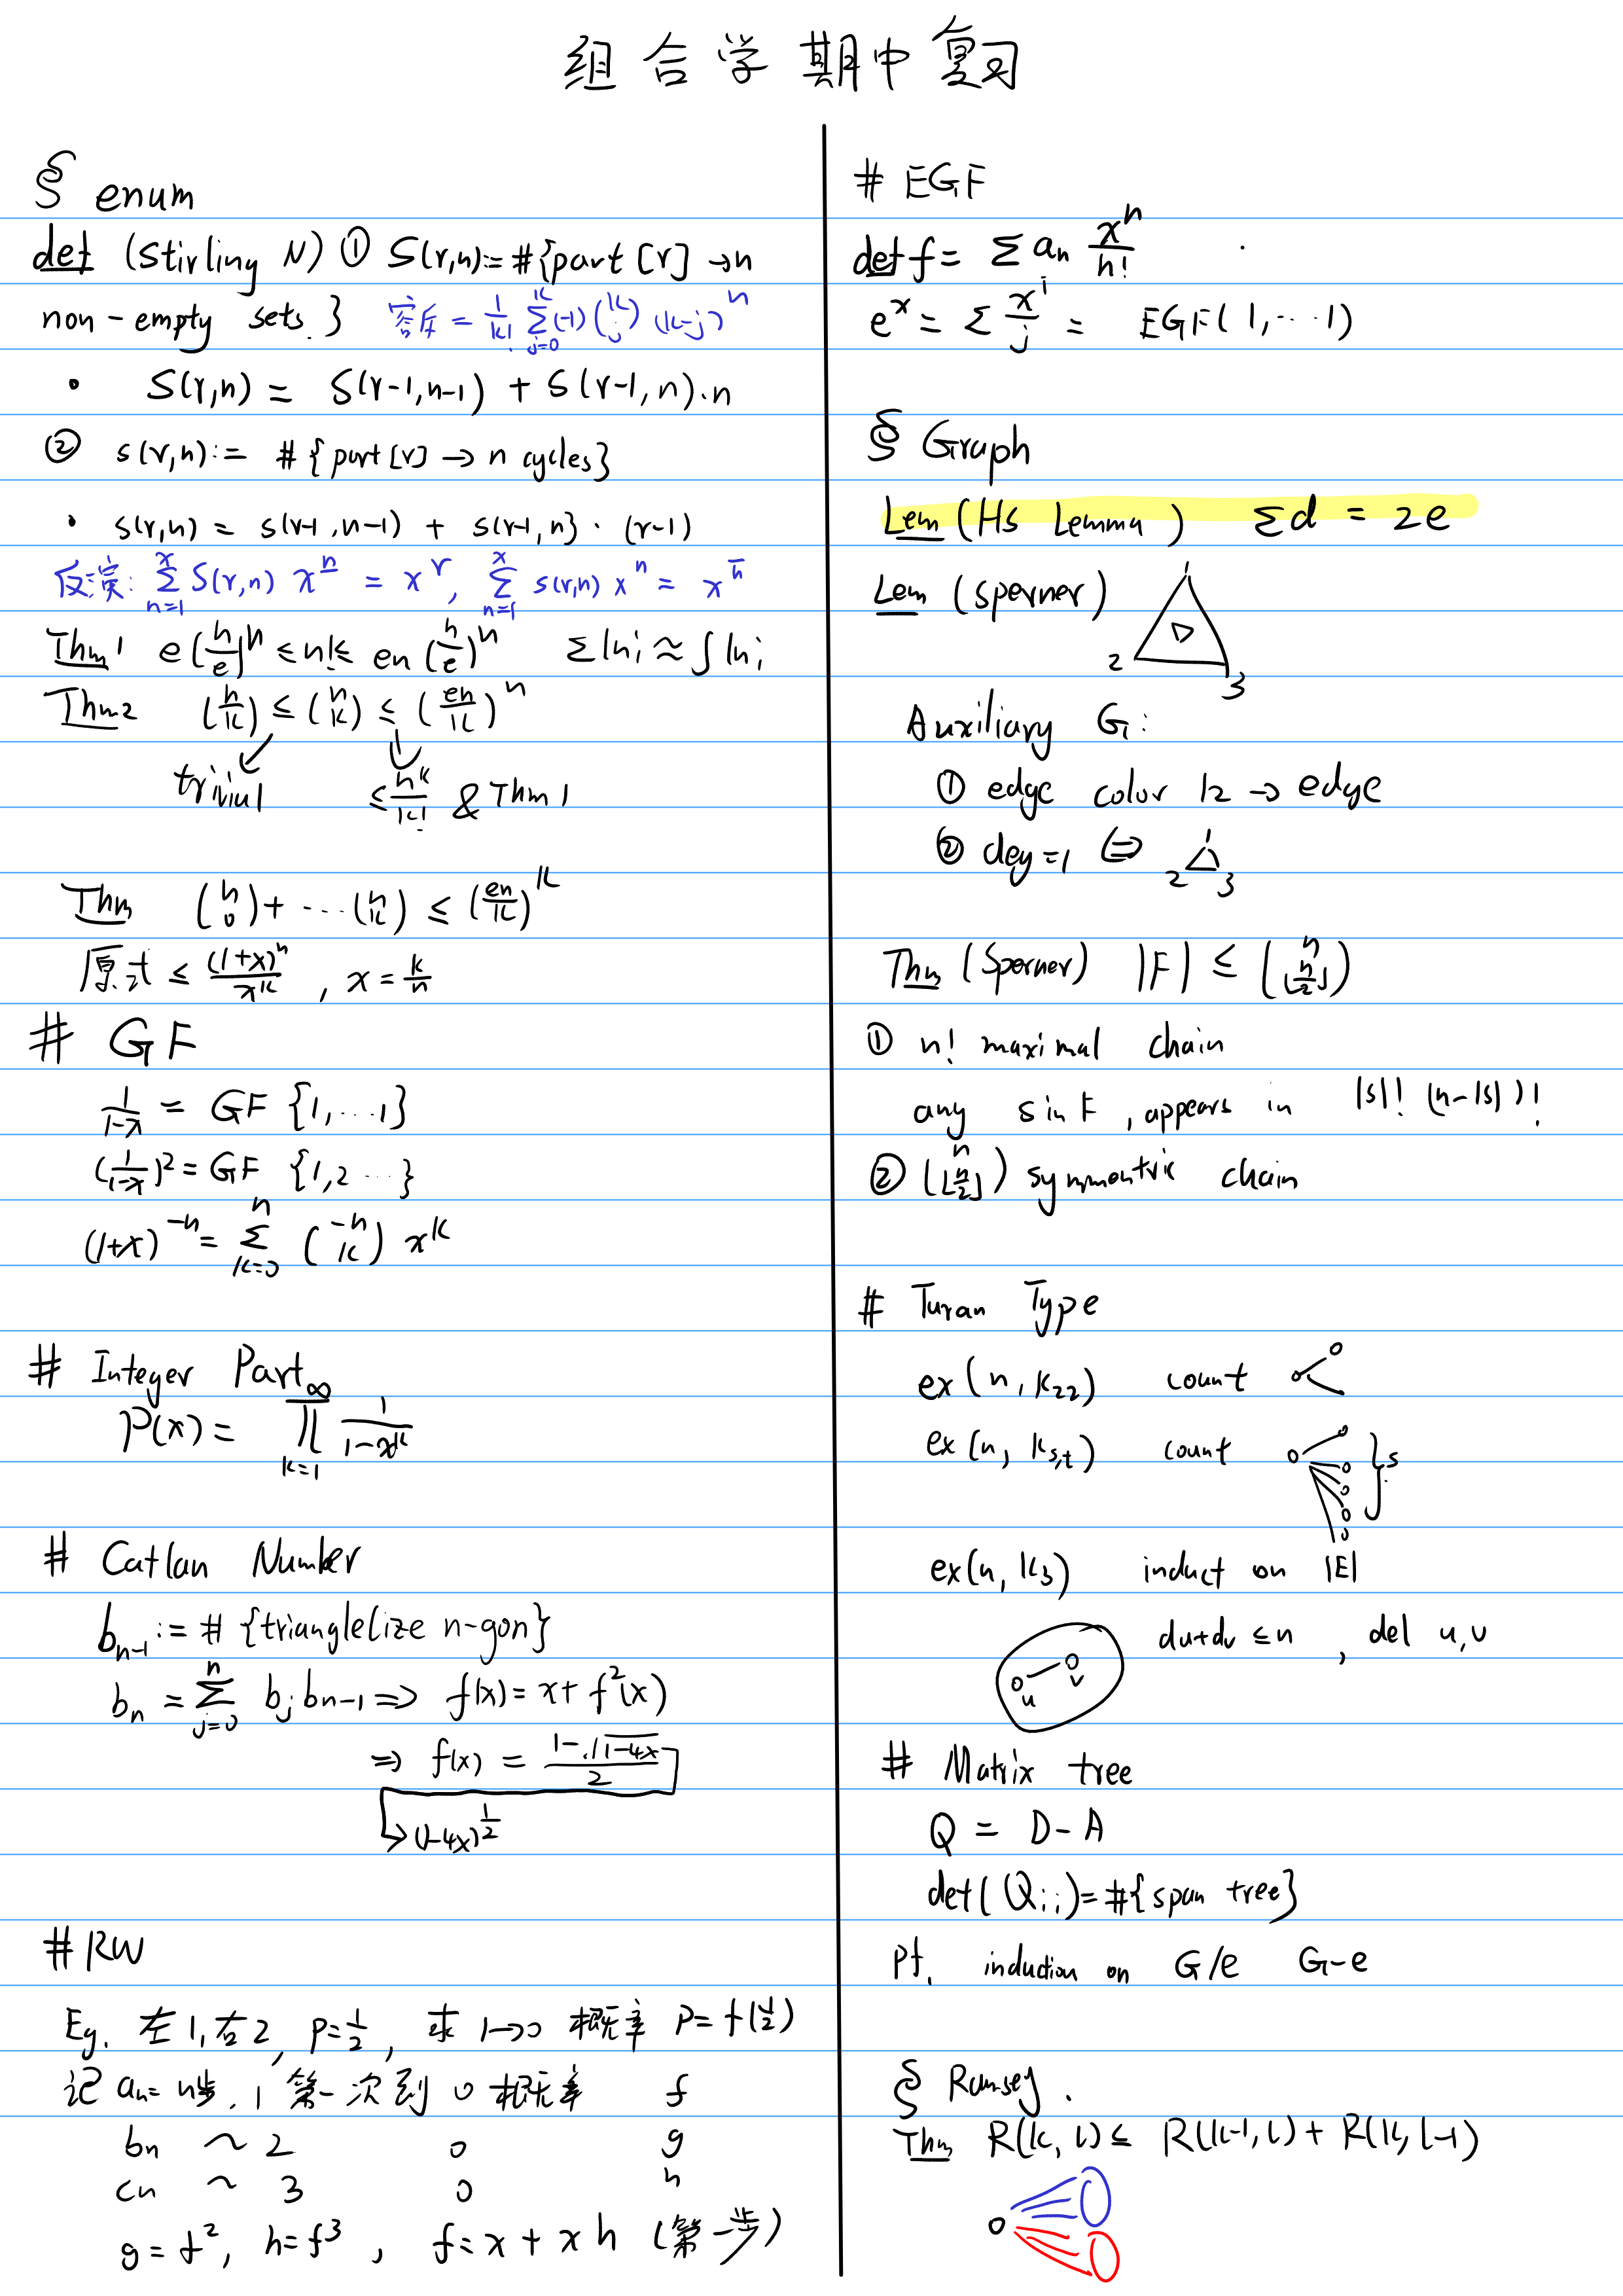 组合学期中复习
§ enum
def (Stirling N) ① S(r,n):=#{part [r] → n
non-empty sets.} 容斥 = 1/k! Σ_{j=0}^{k} (-1) (k j) (k-j)^n
• S(r,n) = S(r-1,n-1) + S(r-1,n)·n
② s(r,n):= #{part [r] → n cycles}
• s(r,n) = s(r-1,n-1) + s(r-1,n)·(r-1)
反演: Σ_{n=1}^{x} S(r,n) x^{\underline{n}} = x^r, Σ_{n=1}^{x} s(r,n) x^n = x^{\overline{n}}
Thm1 e(n/e)^n ≤ n! ≤ en(n/e)^n Σ ln i ≈ ∫ ln i
Thm2 (n/k) ≤ (n k) ≤ (en/k)^n
trivial ≤ n^k/k! & Thm1
Thm (n 0)+ ⋯ (n k) ≤ (en/k)^k
原式 ≤ (1+x)^n/x^k , x = k/n
# GF
1/(1-x) = GF {1,....1}
(1/(1-x))^2 = GF {1,2 ...}
(1+x)^{-n} = Σ_{k=0}^{n} (-n k) x^k
# Integer Part
P(x) = ∏_{k=1}^{∞} 1/(1-x^k)
# Catlan Number
b_{n-1} := # {trianglelize n-gon}
b_n = Σ_{j=0}^{n} b_j b_{n-1} ⇒ f(x) = x + f^2(x)
⇒ f(x) = (1-√(1-4x))/2
(1-4x)^{1/2}
# RW
Eg. 左1,右2, p=1/2, 求 1→0 概率 P= f(1/2)
记 a_n= n步, 1 第一次到 0 概率 f
b_n ~ 2 0 g
c_n ~ 3 0 h
g = f^2, h = f^3, f = x + x h (第一步)
# EGF
def f = Σ a_n x^n/n!
e^x = Σ x^i/j = EGF(1,...1)
§ Graph
Lem (Hs Lemma) Σd = 2e
Lem (Sperner) 1
2 3
Auxiliary G:
① edge color 12 → edge
② deg=1 ⇔ 1
2 3
Thm (Sperner) |F| ≤ (n ⌊n/2⌋)
① n! maximal chain
any s in F, appears in |s|! (n-|s|)!
② (n ⌊n/2⌋) symmentric chain
# Turan Type
ex(n, K_{22}) count
ex(n, K_{s,t}) count } s
ex(n, K_3) induct on |E|
du+dv ≤ n , del u,v
u v
# Matrix tree
Q = D-A
det(Q_{ii}) = #{span tree}
Pf. induction on G/e G-e
§ Ramsey.
Thm R(k, l) ≤ R(k-1, l) + R(k, l-1)